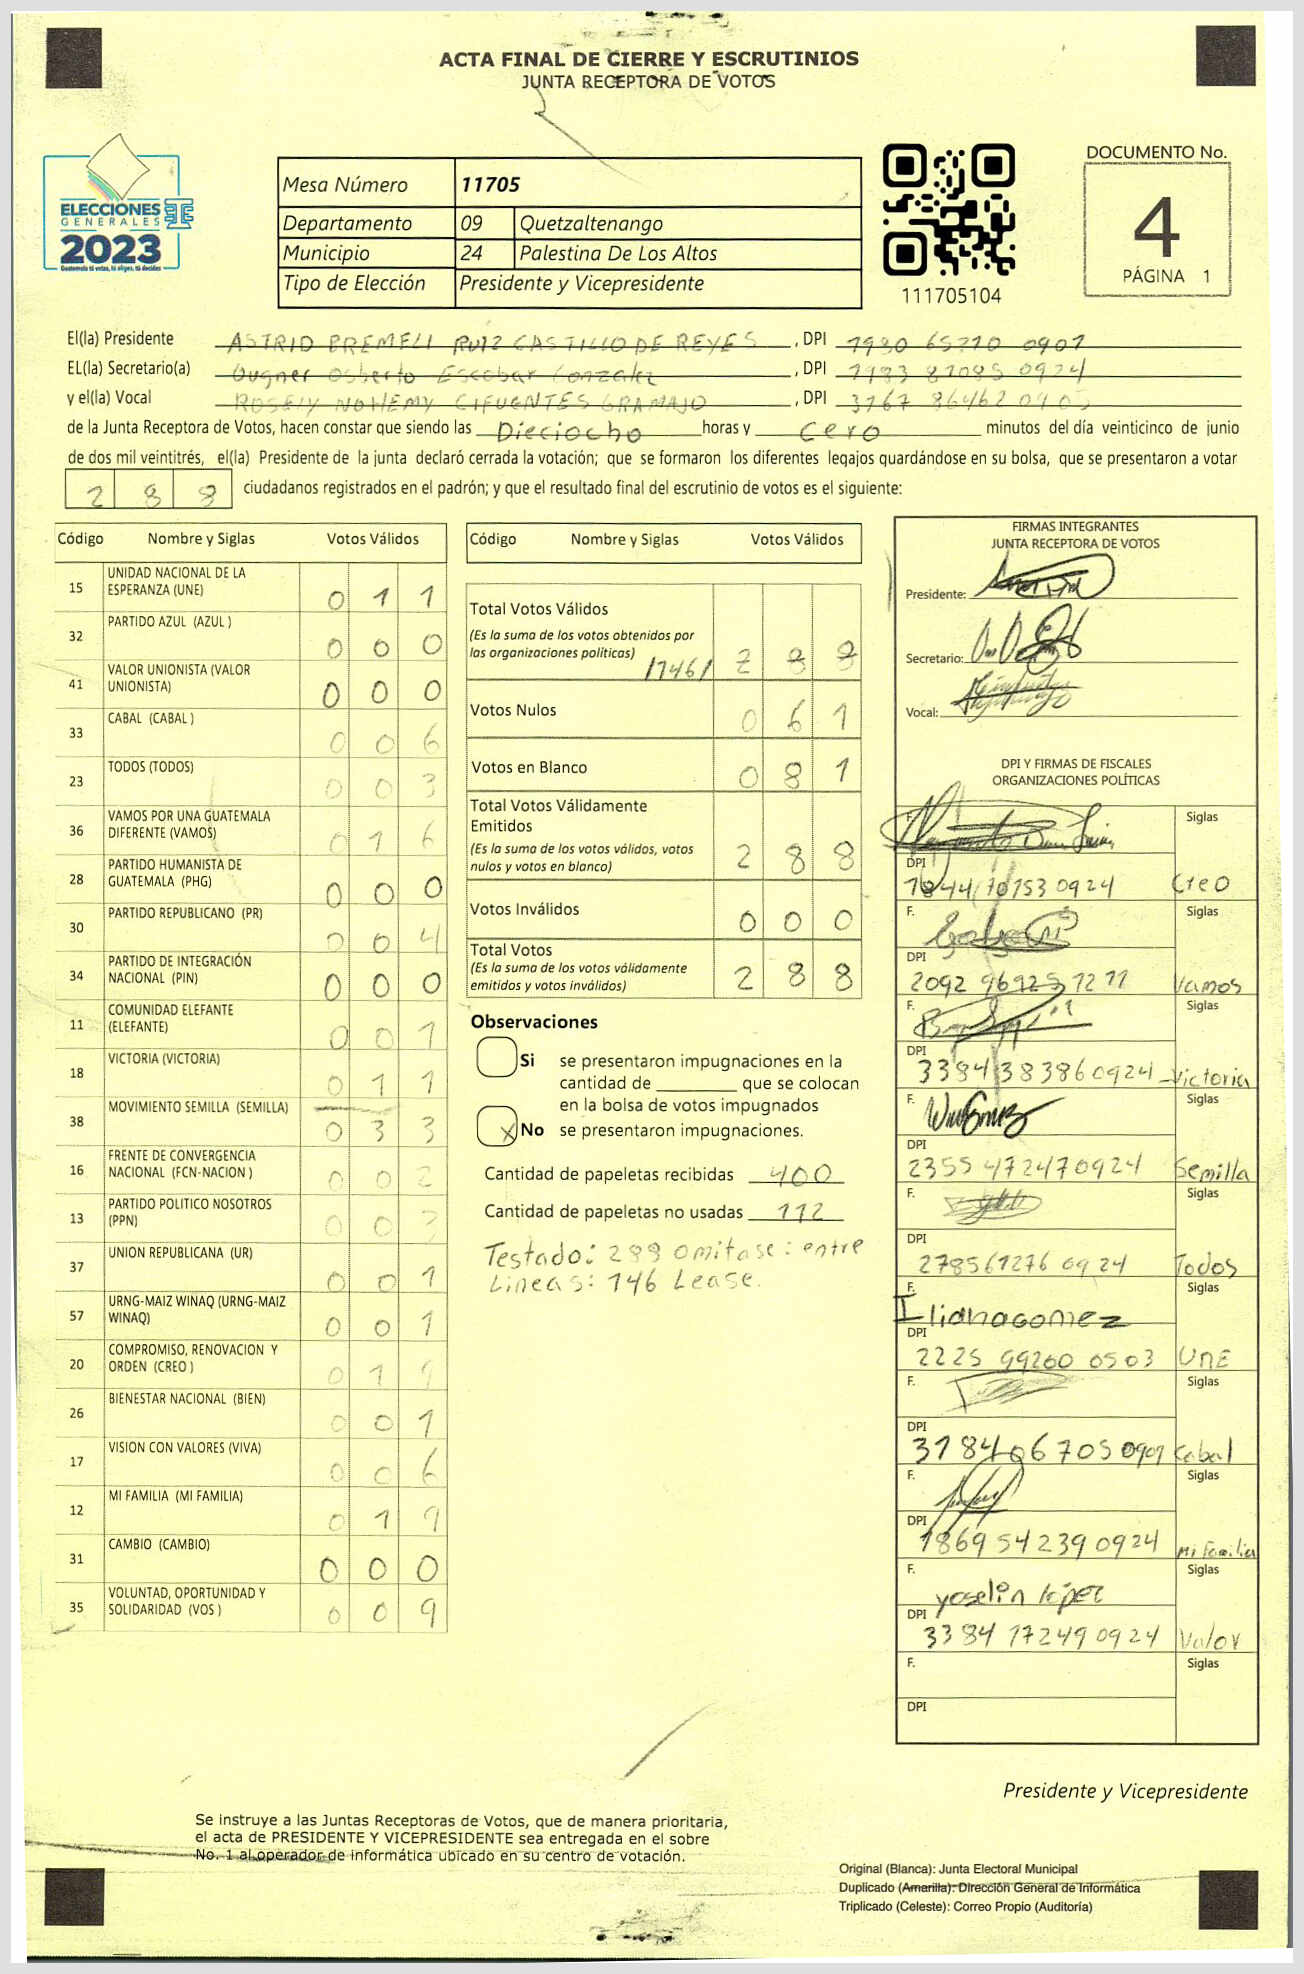 ACTA FINAL DE CIERRE Y ESCRUTINIOS
JUNTA RECEPTORA DE VOTOS
ELECCIONES
GENERALES
2023
Guatemala tú votas, tú eliges, tú decides
Mesa Número 11705
Departamento 09 Quetzaltenango
Municipio 24 Palestina De Los Altos
Tipo de Elección Presidente y Vicepresidente
111705104
DOCUMENTO No.
4
PÁGINA 1
El(la) Presidente ASTRID BREMELI RUIZ CASTILLO DE REYES, DPI 1980 65710 0901
EL(la) Secretario(a) Osberto Escobar Gonzalez, DPI 1983 87085 0924
y el(la) Vocal ROSELY NOHEMY CIFUENTES GRAMAJO, DPI 3767 86462 0905
de la Junta Receptora de Votos, hacen constar que siendo las Dieciocho horas y Cero minutos del día veinticinco de junio
de dos mil veintitrés, el(la) Presidente de la junta declaró cerrada la votación; que se formaron los diferentes legajos quardándose en su bolsa, que se presentaron a votar
288 ciudadanos registrados en el padrón; y que el resultado final del escrutinio de votos es el siguiente:
Código Nombre y Siglas Votos Válidos
15 UNIDAD NACIONAL DE LA ESPERANZA (UNE) 0 1 1
32 PARTIDO AZUL (AZUL ) 0 0 0
41 VALOR UNIONISTA (VALOR UNIONISTA) 0 0 0
33 CABAL (CABAL ) 0 0 6
23 TODOS (TODOS) 0 0 3
36 VAMOS POR UNA GUATEMALA DIFERENTE (VAMOS) 0 1 6
28 PARTIDO HUMANISTA DE GUATEMALA (PHG) 0 0 0
30 PARTIDO REPUBLICANO (PR) 0 0 4
34 PARTIDO DE INTEGRACIÓN NACIONAL (PIN) 0 0 0
11 COMUNIDAD ELEFANTE (ELEFANTE) 0 0 1
18 VICTORIA (VICTORIA) 0 1 1
38 MOVIMIENTO SEMILLA (SEMILLA) 0 3 3
16 FRENTE DE CONVERGENCIA NACIONAL (FCN-NACION ) 0 0 2
13 PARTIDO POLITICO NOSOTROS (PPN) 0 0 3
37 UNION REPUBLICANA (UR) 0 0 1
57 URNG-MAIZ WINAQ (URNG-MAIZ WINAQ) 0 0 1
20 COMPROMISO, RENOVACION Y ORDEN (CREO ) 0 1 9
26 BIENESTAR NACIONAL (BIEN) 0 0 1
17 VISION CON VALORES (VIVA) 0 0 6
12 MI FAMILIA (MI FAMILIA) 0 1 9
31 CAMBIO (CAMBIO) 0 0 0
35 VOLUNTAD, OPORTUNIDAD Y SOLIDARIDAD (VOS ) 0 0 9
Código Nombre y Siglas Votos Válidos
Total Votos Válidos
(Es la suma de los votos obtenidos por
las organizaciones políticas) /146/ 2 8 8
Votos Nulos 0 6 1
Votos en Blanco 0 8 1
Total Votos Válidamente
Emitidos
(Es la suma de los votos válidos, votos
nulos y votos en blanco) 2 8 8
Votos Inválidos 0 0 0
Total Votos
(Es la suma de los votos válidamente
emitidos y votos inválidos) 2 8 8
Observaciones
Si se presentaron impugnaciones en la
cantidad de ________ que se colocan
en la bolsa de votos impugnados
X No se presentaron impugnaciones.
Cantidad de papeletas recibidas 400
Cantidad de papeletas no usadas 112
Testado: 288 omitase: entre
Lineas: 146 Lease.
FIRMAS INTEGRANTES
JUNTA RECEPTORA DE VOTOS
Presidente:
Secretario:
Vocal:
DPI Y FIRMAS DE FISCALES
ORGANIZACIONES POLÍTICAS
F. Siglas
DPI 1844 70753 0924 Creo
F. Siglas
DPI 2092 96923 1211 Vamos
F. Siglas
DPI 3384 38386 0924 Victoria
F. Siglas
DPI 2355 47247 0924 Semilla
F. Siglas
DPI 278561276 0924 Todos
F. Ilianagomez Siglas
DPI 2225 99260 0503 UNE
F. Siglas
DPI 3184 06705 0901 Cabal
F. Siglas
DPI 1869 54239 0924 Mi Familia
F. yoselin lópez Siglas
DPI 3384 17249 0924 Valor
F. Siglas
DPI
Presidente y Vicepresidente
Se instruye a las Juntas Receptoras de Votos, que de manera prioritaria,
el acta de PRESIDENTE Y VICEPRESIDENTE sea entregada en el sobre
No. 1 al operador de informática ubicado en su centro de votación.
Original (Blanca): Junta Electoral Municipal
Duplicado (Amarilla): Dirección General de Informática
Triplicado (Celeste): Correo Propio (Auditoría)